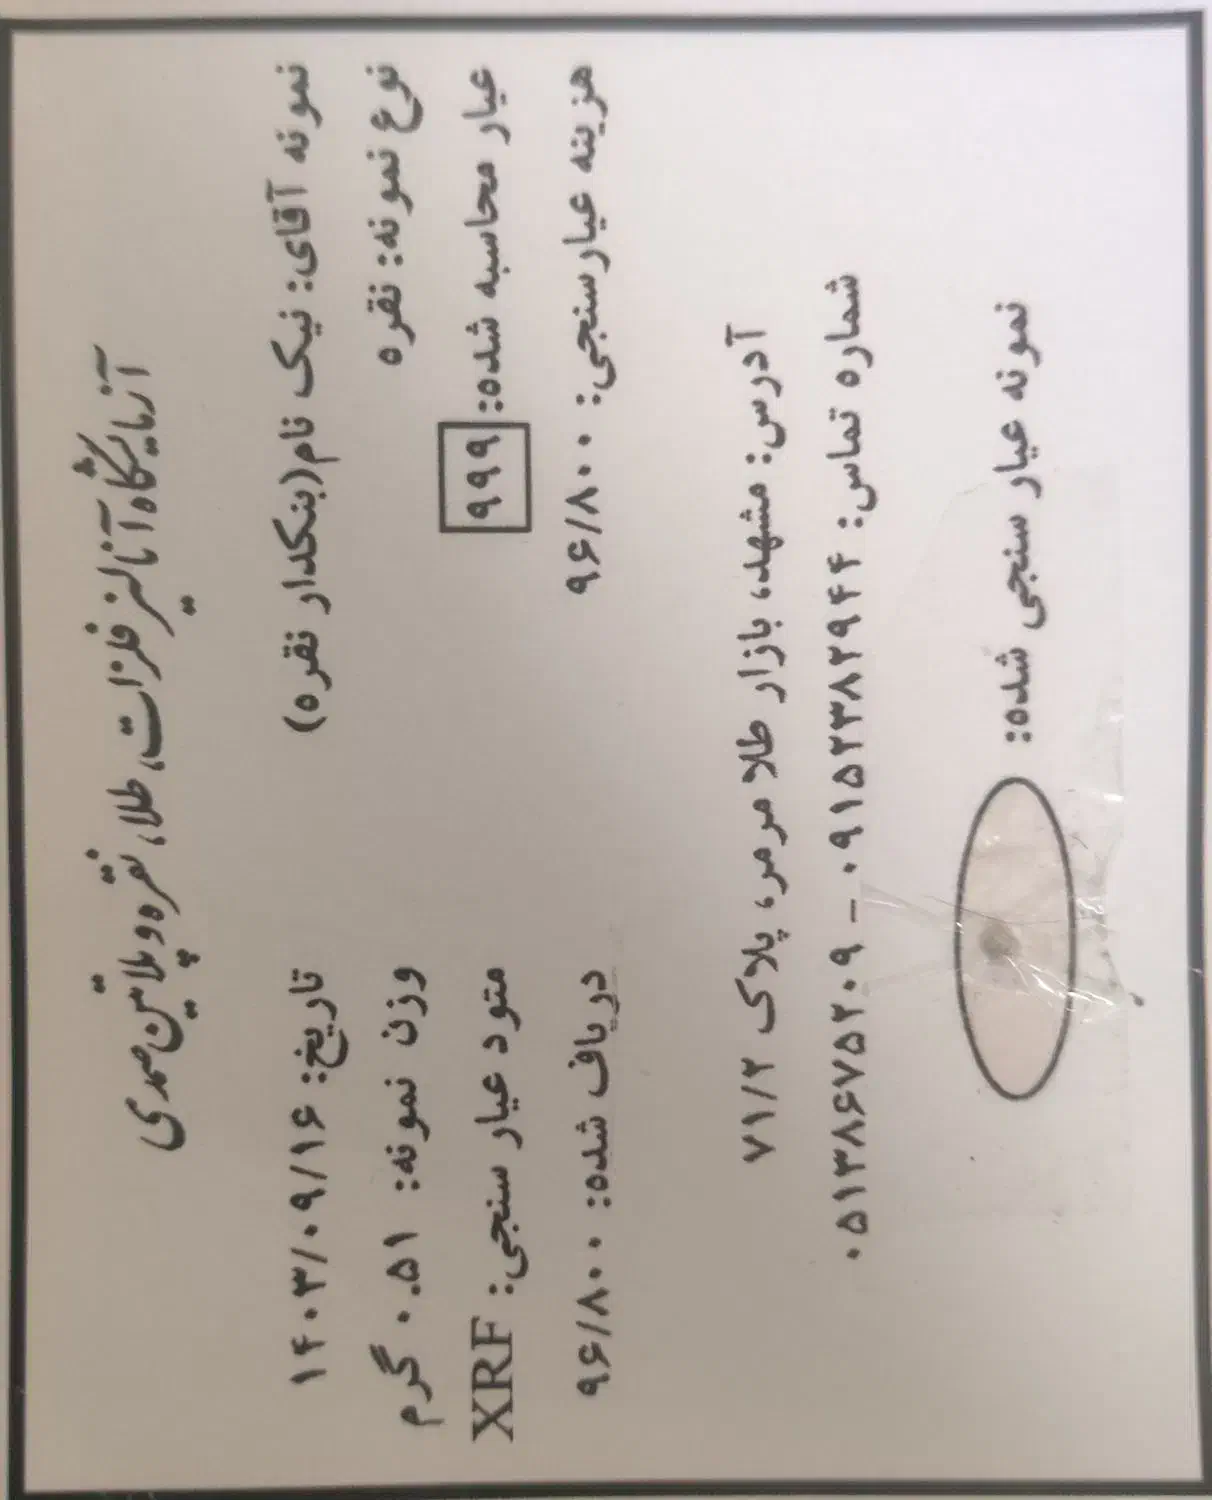 آزمایشگاه آنالیز فلزات، طلا، نقره و پلاتین صمدی
نمونه آقای: نیک نام(بنکدار نقره) تاریخ: ۱۴۰۳/۰۹/۱۶
نوع نمونه: نقره وزن نمونه: ۰.۵۱ گرم
عیار محاسبه شده: ۹۹۹ متود عیار سنجی: XRF
هزینه عیارسنجی: ۹۶/۸۰۰ دریاف شده: ۹۶/۸۰۰
آدرس: مشهد، بازار طلا مرمر، پلاک ۷۱/۲
شماره تماس: ۰۹۱۵۲۳۸۲۹۴۴ – ۰۵۱۳۸۶۷۵۲۰۹
نمونه عیار سنجی شده: